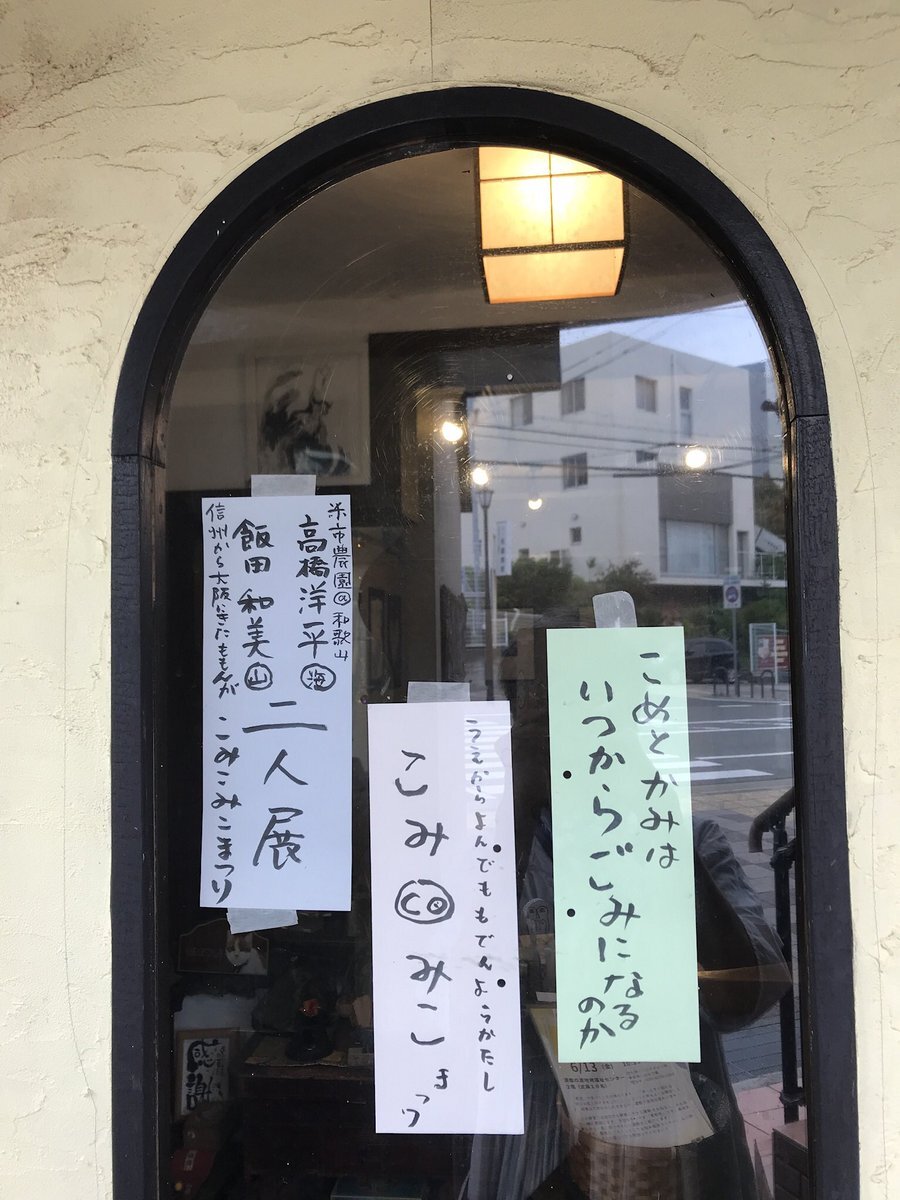 こめとかみは
いつからごみになる
のか
うえからよんでももでんようかたし
こみCoみこ
まつり
米市農園@和歌山
高橋洋平海
飯田和美山
二人展
信州から大阪にきたももんが
こみこみこまつり
感謝
6/13(金)